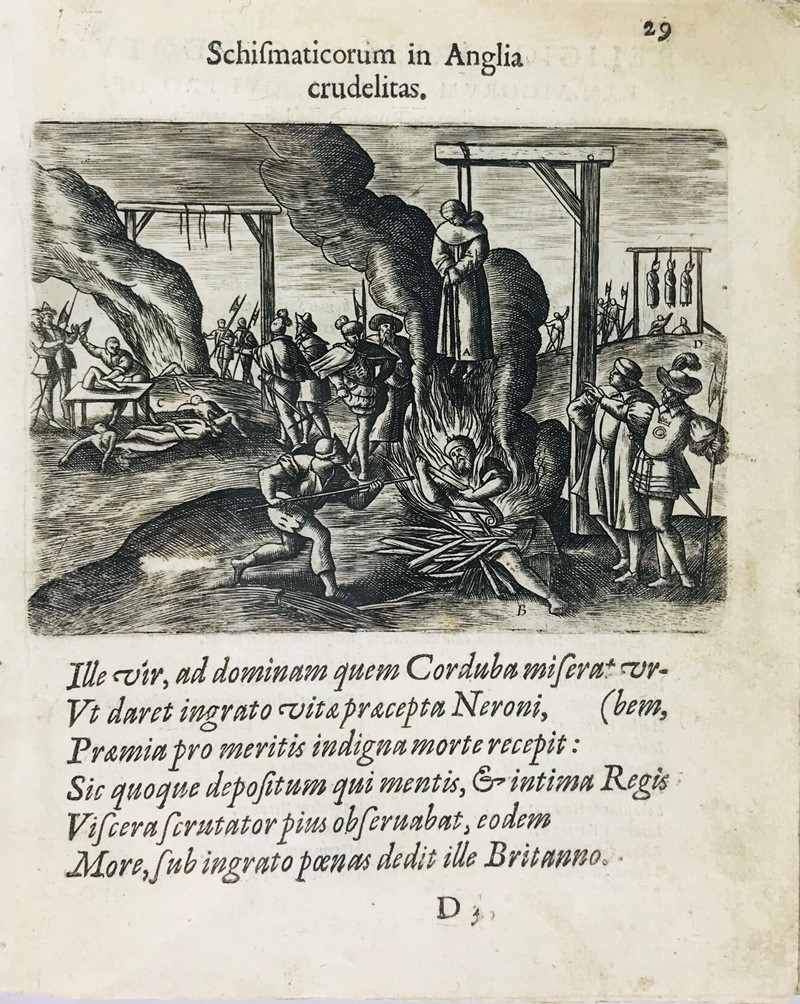 29
Schiſmaticorum in Anglia
crudelitas.
A
B
C
D
Ille vir, ad dominam quem Corduba miſerat vr-
Vt daret ingrato vitæ præcepta Neroni, (bem,
Præmia pro meritis indigna morte recepit:
Sic quoque depoſitum qui mentis, & intima Regis
Viſcera ſcrutator pius obſeruabat, eodem
More, ſub ingrato pœnas dedit ille Britanno.
D 3